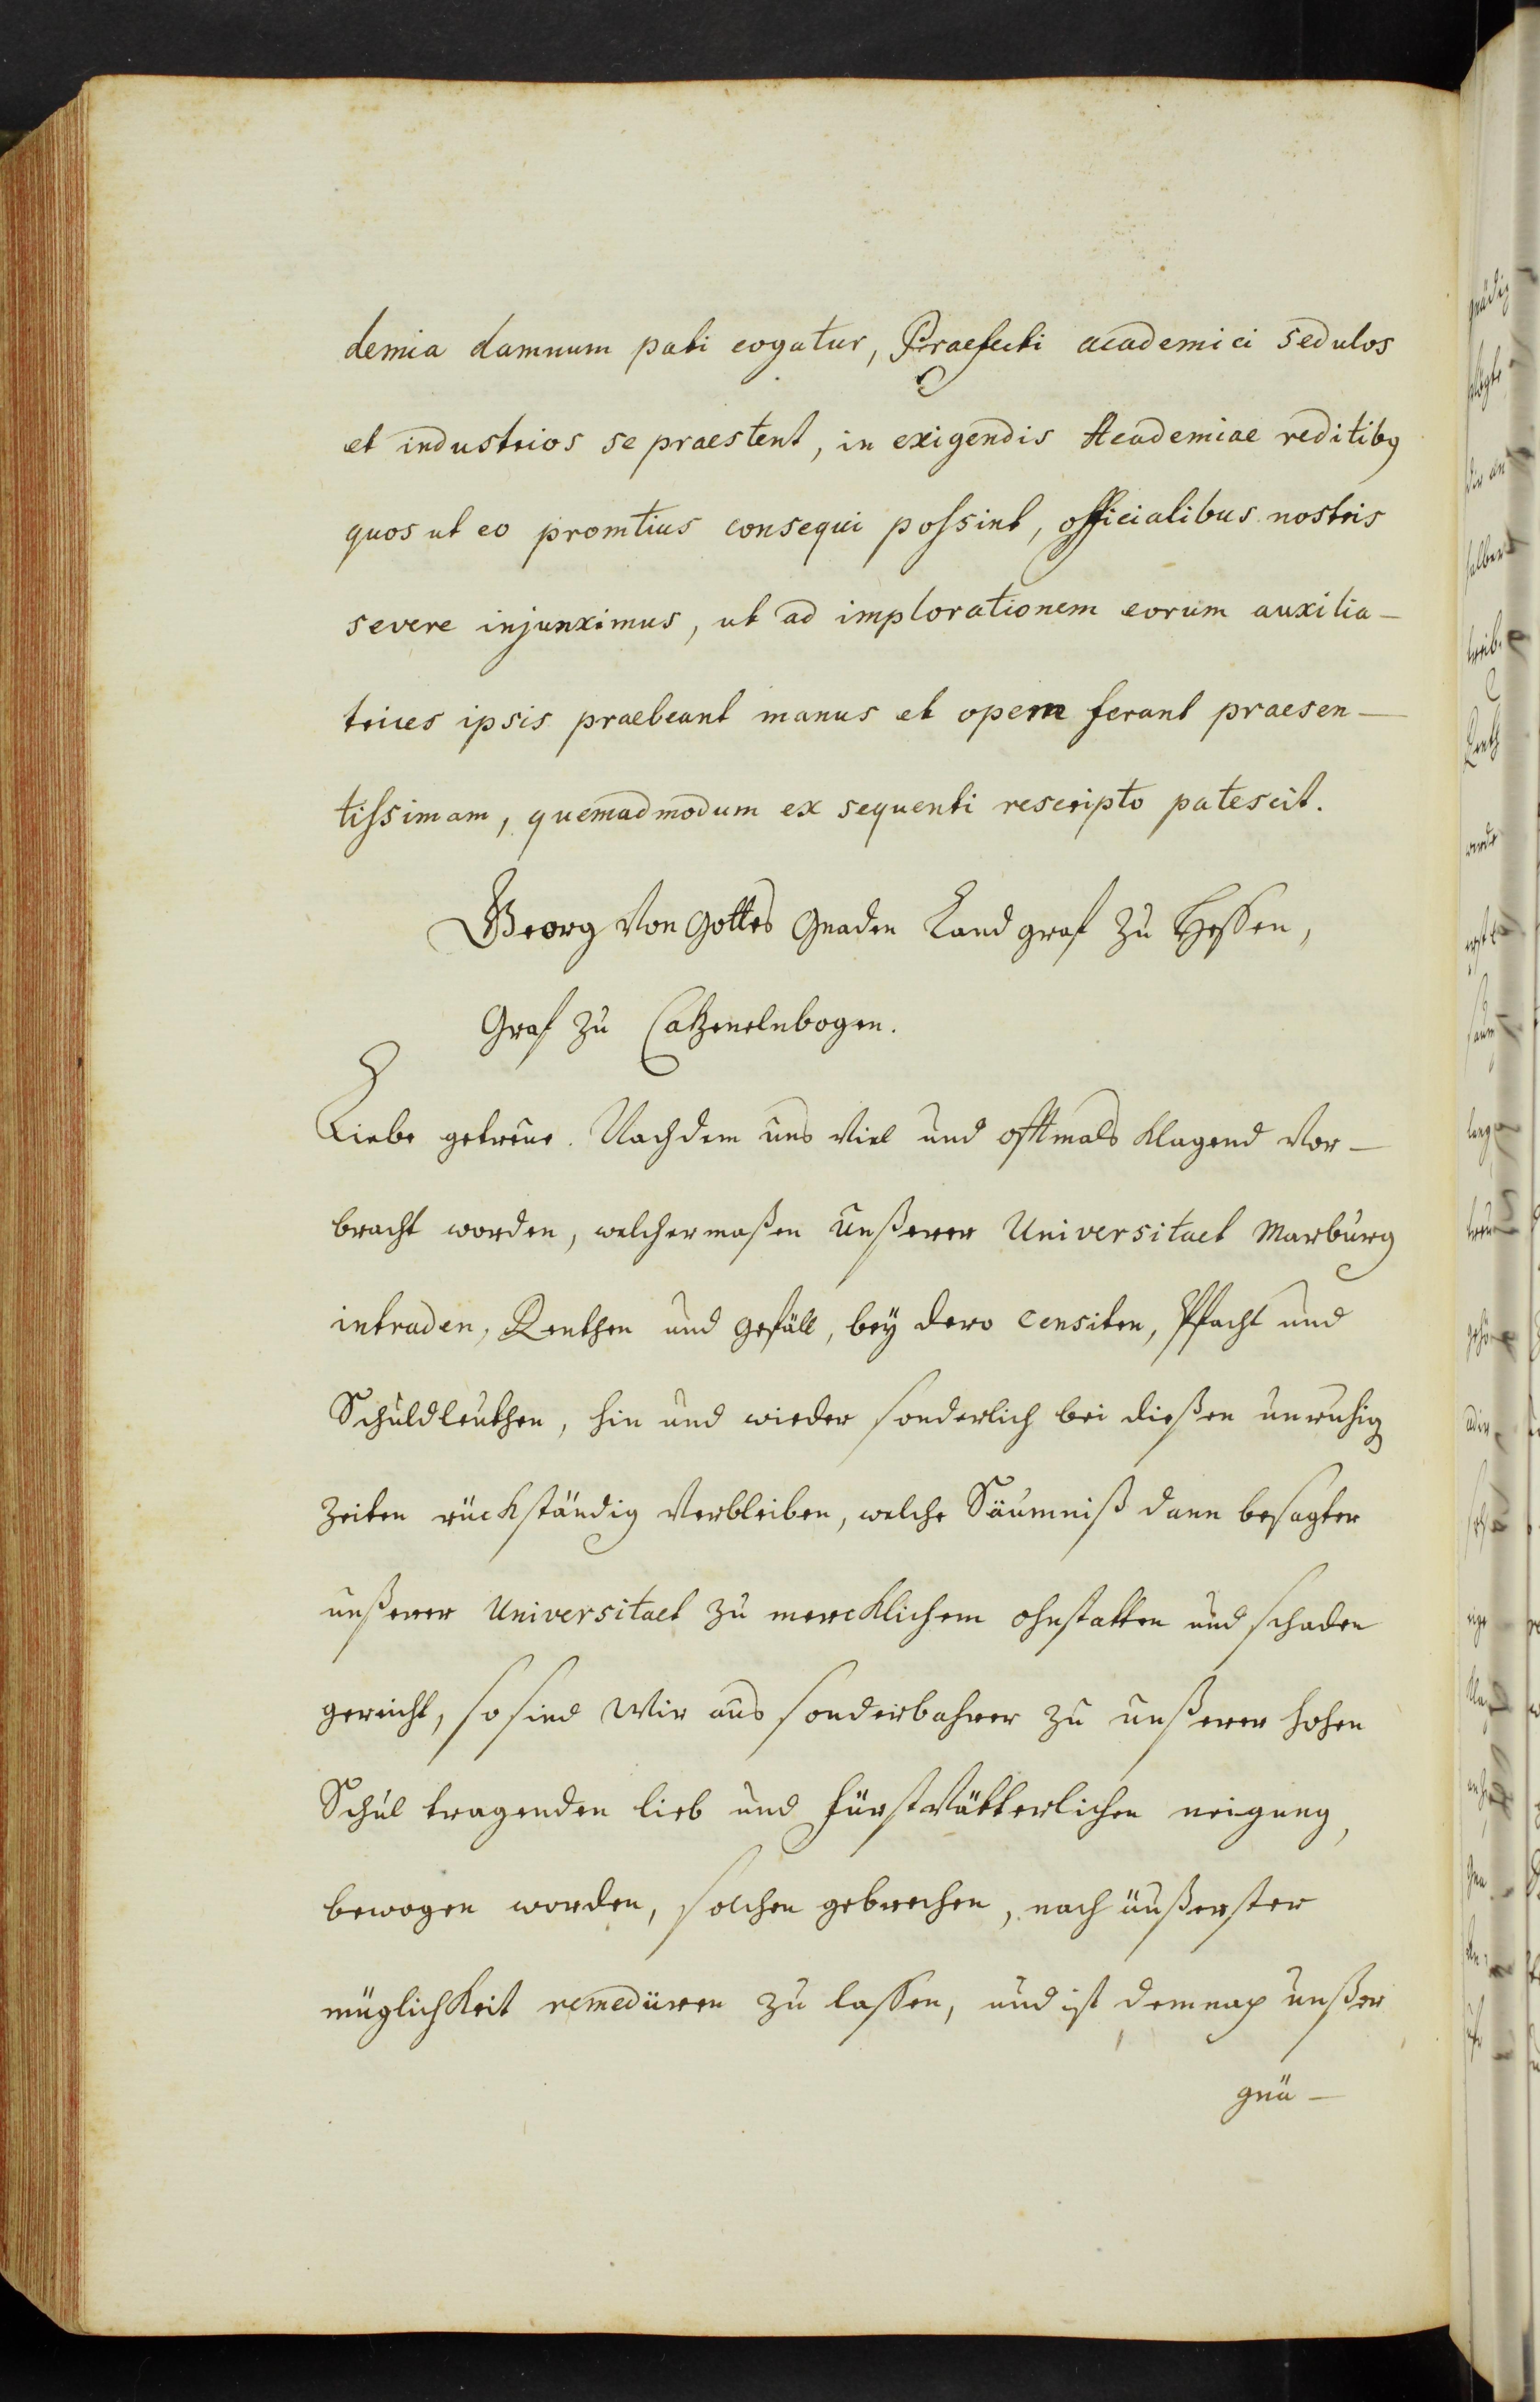 demia damnum pati cogatur, Praefecti academici sedulos
et industrios se praestent, in exigendis Academiae reditibus
quos ut eo promtius consequi possint, officialibus nostris
severe injunximus, ut ad implorationem eorum auxilia-
trices ipsis praebeant manus et opem ferant praesen-
tissimam, quemadmodum ex sequenti rescripto patescit.
Georg Von Gottes Gnaden Landgraf zu Hessen,
Graf zu Catzenelnbogen.
Liebe getreue. Nachdem uns Viel und offtmals klagend Vor-
bracht worden, welchermaßen unßerer Universitaet Marburg
intraden, Renthen und Gefäll, bey dero Censiten, Pfacht und
Schuldleuthen, hin und wieder sonderlich bei dießen unruhig
Zeiten rückständig Verbleiben, welche Säumniß dann besagter
unßerer Universitaet zu mercklichem ohnstatten und schaden
gereicht, so sind Wir aus sonderbahrer zu unßerer hohen
Schul tragenden lieb und fürstVätterlichen neigung,
bewogen worden, solchen gebrechen, nach äußerster
müglichkeit remedüren zu lassen, und ist demnach unßer
gnä-